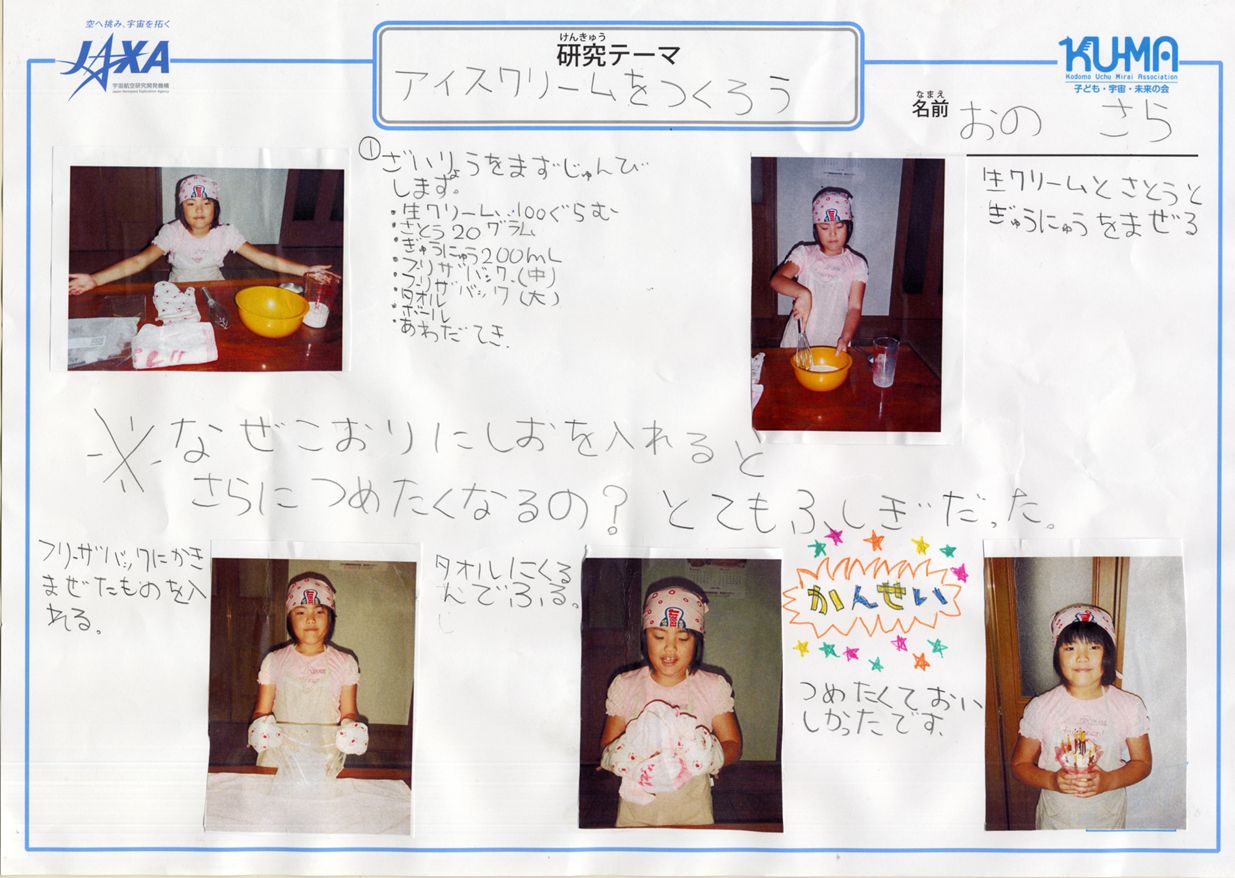 空へ挑み、宇宙を拓く
JAXA
宇宙航空研究開発機構
Japan Aerospace Exploration Agency
けんきゅう
研究テーマ
アイスクリームをつくろう
KU-MA
Kodomo Uchu Mirai Association
子ども・宇宙・未来の会
なまえ
名前
おの さら
①ざいりょうをまずじゅんび
します。
・生クリーム、100ぐらむ
・さとう20グラム
・ぎゅうにゅう200mL
・フリザバック.(中)
・フリザバック(大)
・タオル
・ボール
・あわだてき.
生クリームとさとうと
ぎゅうにゅうをまぜる
※なぜこおりにしおを入れると
さらにつめたくなるの?とてもふしぎだった。
フリーザバックにかき
まぜたものを入
れる。
タオルにくる
んでふる。
かんせい
つめたくておい
しかったです、